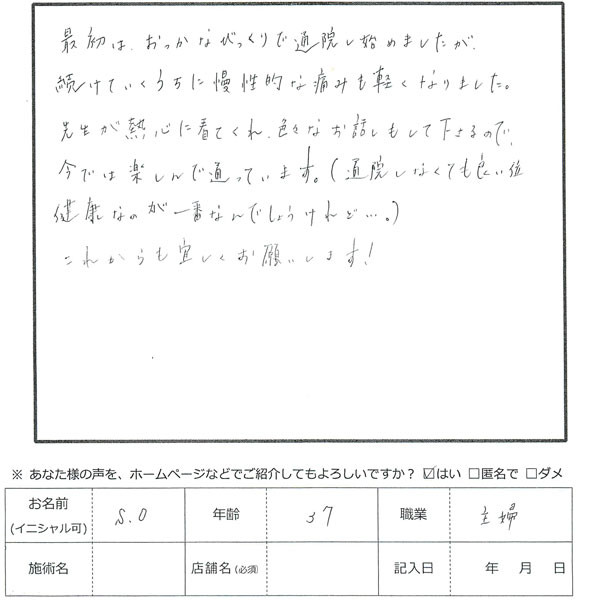 最初は、おっかなびっくりで通院し始めましたが、
続けていくうちに慢性的な痛みも軽くなりました。
先生が熱心に看てくれ、色々なお話しもして下さるので、
今では楽しんで通っています。(通院しなくても良い位
健康なのが一番なんでしょうけれど…。)
これからも宜しくお願いします!
※ あなた様の声を、ホームページなどでご紹介してもよろしいですか? ☑はい □匿名で □ダメ
お名前 (イニシャル可) S.O 年齢 37 職業 主婦
施術名 店舗名(必須) 記入日 年 月 日